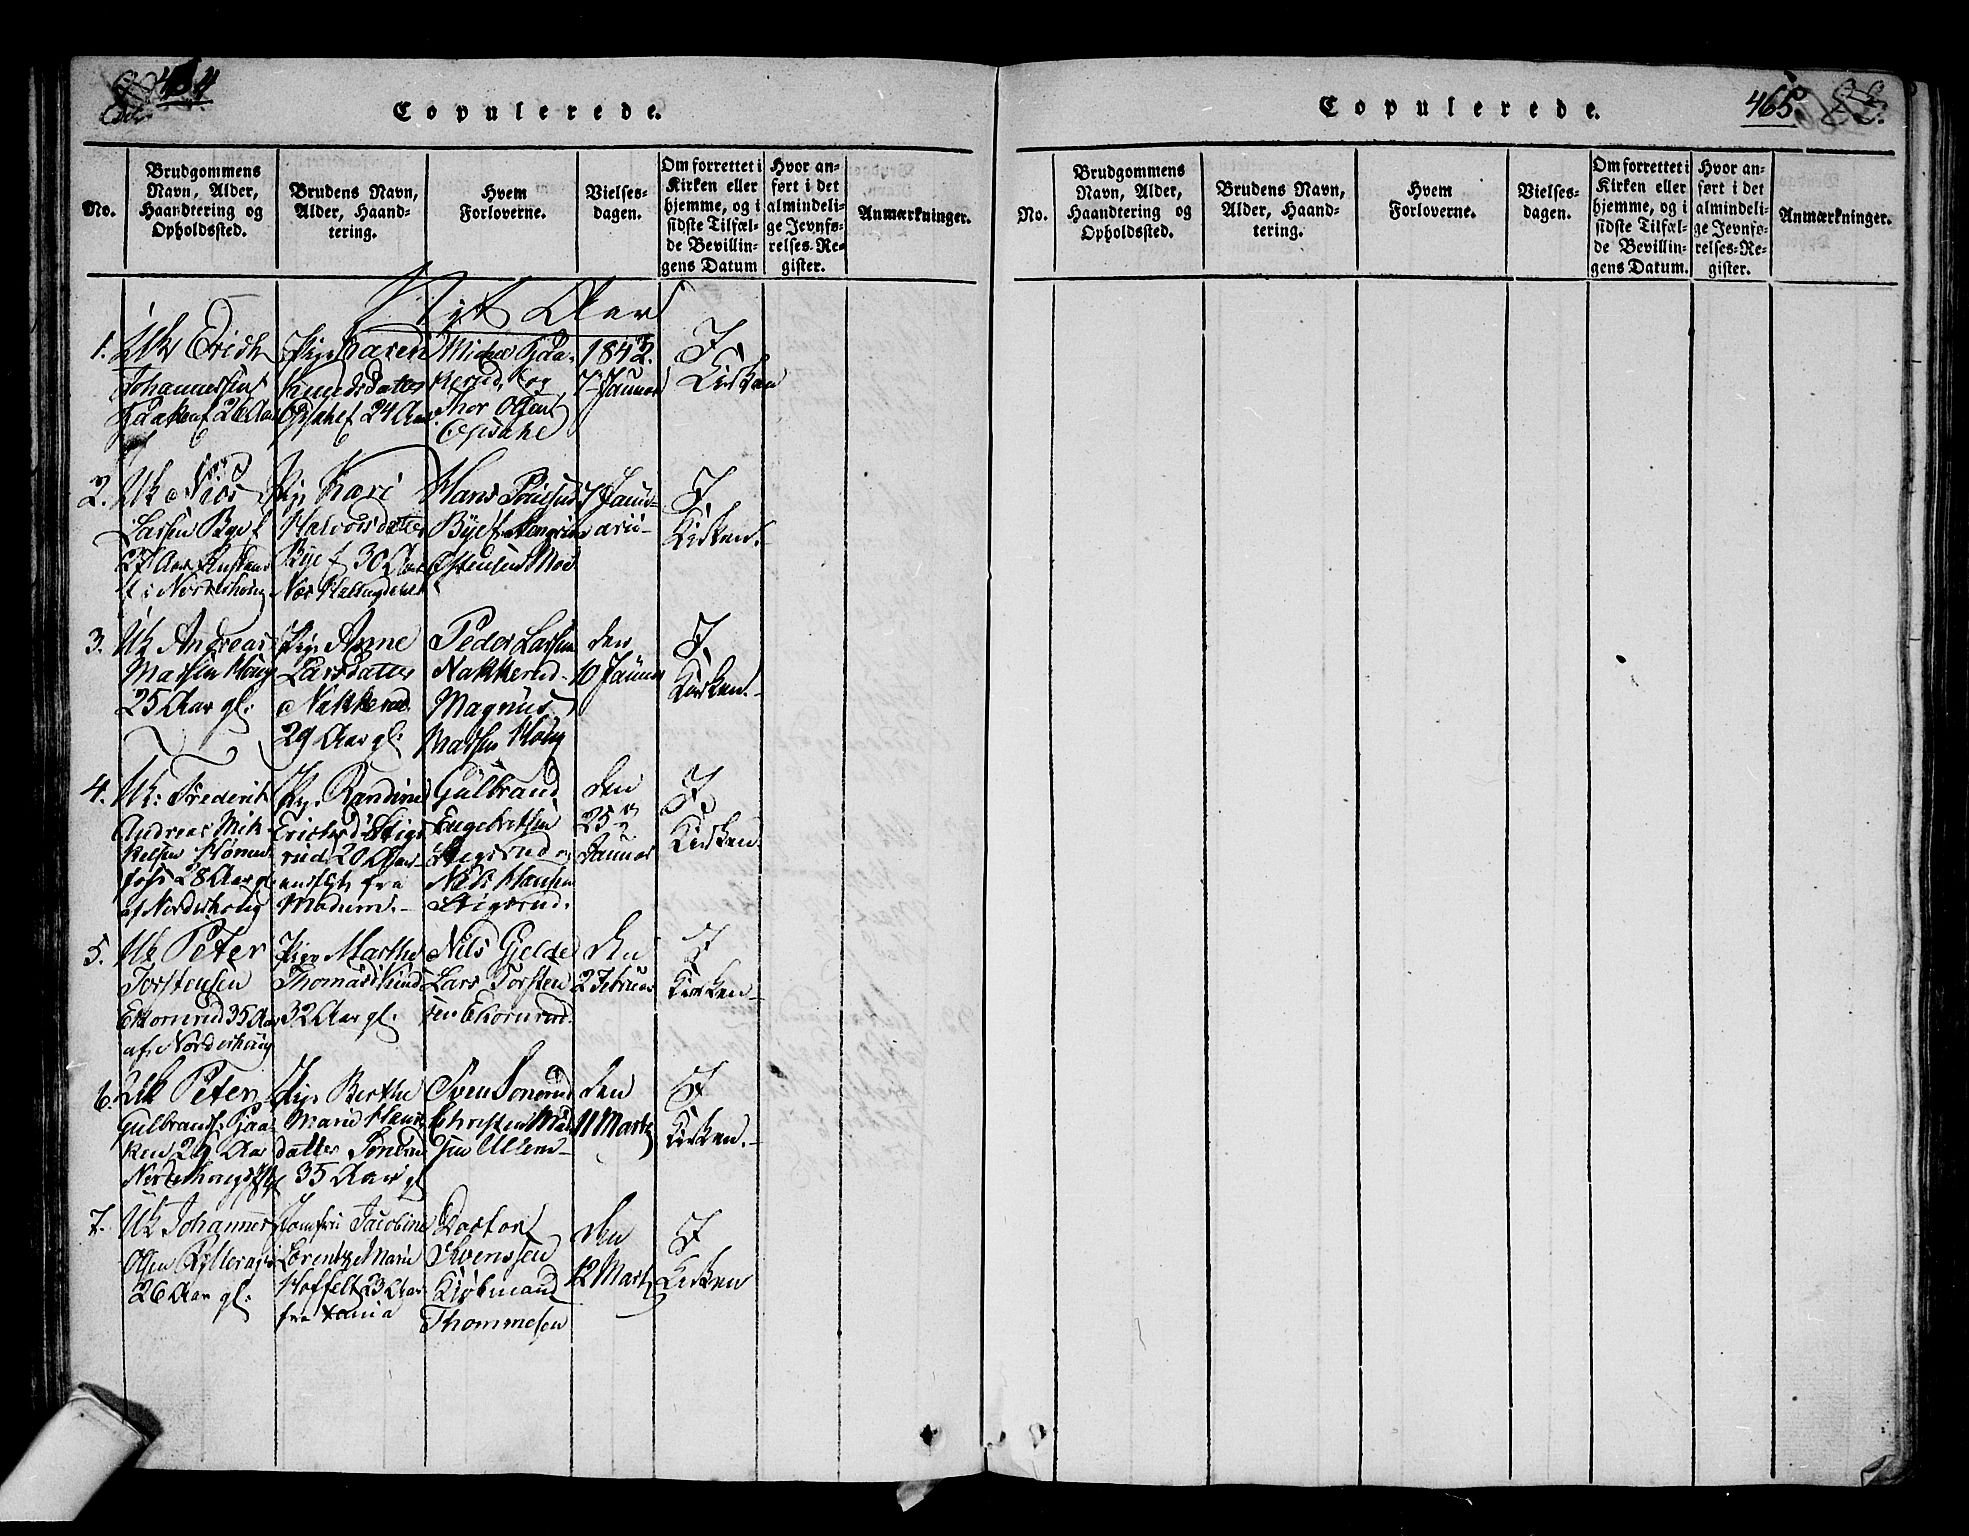 464
Copulerede.
No.
Brudgommens
Navn, Alder,
Haandtering og
Opholdssted.
Brudens Navn,
Alder, Haand-
tering.
Hvem
Forloverne.
Vielses-
dagen.
Om forrettet i
Kirken eller
hjemme, og i
sidste Tilfæl-
de Bevillin-
gens Datum
Hvor an-
ført i det
almindeli-
ge Jevnfø-
relses-Re-
gister.
Anmærkninger.
Nyt Aar
1.
Uk Erich
Johannessen
26 Aar
Pige Karen
Knudsdatter
Opsahl 24 Aar
og
Thor Olsen
Opsahl
1842.
7 Januar
I
Kirken
2.
Uk Niels
Larsen Bye
27 Aar
i Norderhoug
Pige Kari
Halvorsdatter
Bye 30 Aar
Hans Poulsen
Bye
Ostensen Moe
7 Janu-
arii
I
Kirken.
3.
Uk Andreas
Madsen Houg
25 Aar gl.
Pige Anne
Larsdatter
Nakkerud
29 Aar gl.
Peder Larsen
Nakkerud
Magnus
Madsen Houg
den
10 Januar
I
Kirken.
4.
Uk: Frederik
Andreas Mik-
kelsen Hønne-
fos 28 Aar gl
af Norderhoug
Pige Randine
Erichsd Stigs-
rud 20 Aar
ansat fra
Modum.
Gulbrand
Engebretsen
Stigsrud og
Niels Hansen
Stigsrud.
den
25
Januar
I
Kirken
5.
Uk Peter
Torstensen
Ekornrud 35 Aar
af Norderhoug
Pige Marthe
Thomasd Kind
32 Aar gl.
Nils Gjelde
Lars Torsten
sen Ekornrud.
den
2 Februar
I
Kirken
6.
Uk Peter
Gulbrands. Gaa-
ken 29 Aar
Pige Berthe
Marie Hans
datter Sonerud
35 Aar gl
Sven Sonerud
Christen Mad
sen Ullern
den
11 Marts
I
Kirken.
7.
Uk Johannes
Olsen Rytterager
26 Aar gl.
Jomfru Jacobine
Lorentze Marie
Hoffelt 23 Aar
fra Xania
Doctor
Svenssen
Kiøbmand
Thommesen
den
12 Marts
I
Kirken
465
Copulerede.
No.
Brudgommens
Navn, Alder,
Haandtering og
Opholdssted.
Brudens Navn,
Alder, Haand-
tering.
Hvem
Forloverne.
Vielses-
dagen.
Om forrettet i
Kirken eller
hjemme, og i
sidste Tilfæl-
de Bevillin-
gens Datum.
Hvor an-
ført i det
almindeli-
ge Jevnfø-
relses-Re-
gister.
Anmærkninger.